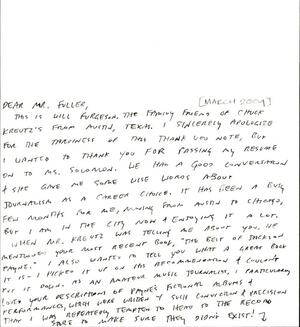 [MARCH 2009]
DEAR MR. FULLER,
THIS IS WILL FURGESON, THE FAMILY FRIEND OF CHUCK
KREUTZ'S FROM AUSTIN, TEXAS. I SINCERELY APOLOGIZE
FOR THE TARDINESS OF THIS THANK YOU NOTE, BUT
I WANTED TO THANK YOU FOR PASSING MY RESUME
ON TO MS. SOLOMON. WE HAD A GOOD CONVERSATION
& SHE GAVE ME SOME WISE WORDS ABOUT
JOURNALISM AS A CAREER CHOICE. IT HAS BEEN A BUSY
FEW MONTHS FOR ME, MOVING FROM AUSTIN TO CHICAGO,
BUT I AM IN THE CITY NOW & ENJOYING IT A LOT.
WHEN MR. KREUTZ WAS TELLING ME ABOUT YOU, HE
MENTIONED YOUR MOST RECENT BOOK, "THE BEST OF JACKSON
PAYNE." I ALSO WANTED TO TELL YOU WHAT A GREAT BOOK
IT IS - I PICKED IT UP ON HIS RECOMMENDATION & COULDN'T
PUT IT DOWN. AS AN AMATEUR MUSIC JOURNALIST, I PARTICULARLY
LOVED YOUR DESCRIPTIONS OF PAYNE'S FICTIONAL ALBUMS &
PERFORMANCES, WHICH WERE WRITTEN W/ SUCH CONVICTION & PRECISION
THAT I WAS REPEATEDLY TEMPTED TO HEAD TO THE RECORD
STORE TO MAKE SURE THEY DIDN'T EXIST!